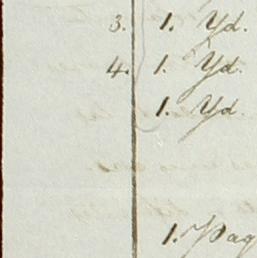 3. 1. Yd.
4. 1. Yd.
1. Yd.
1.